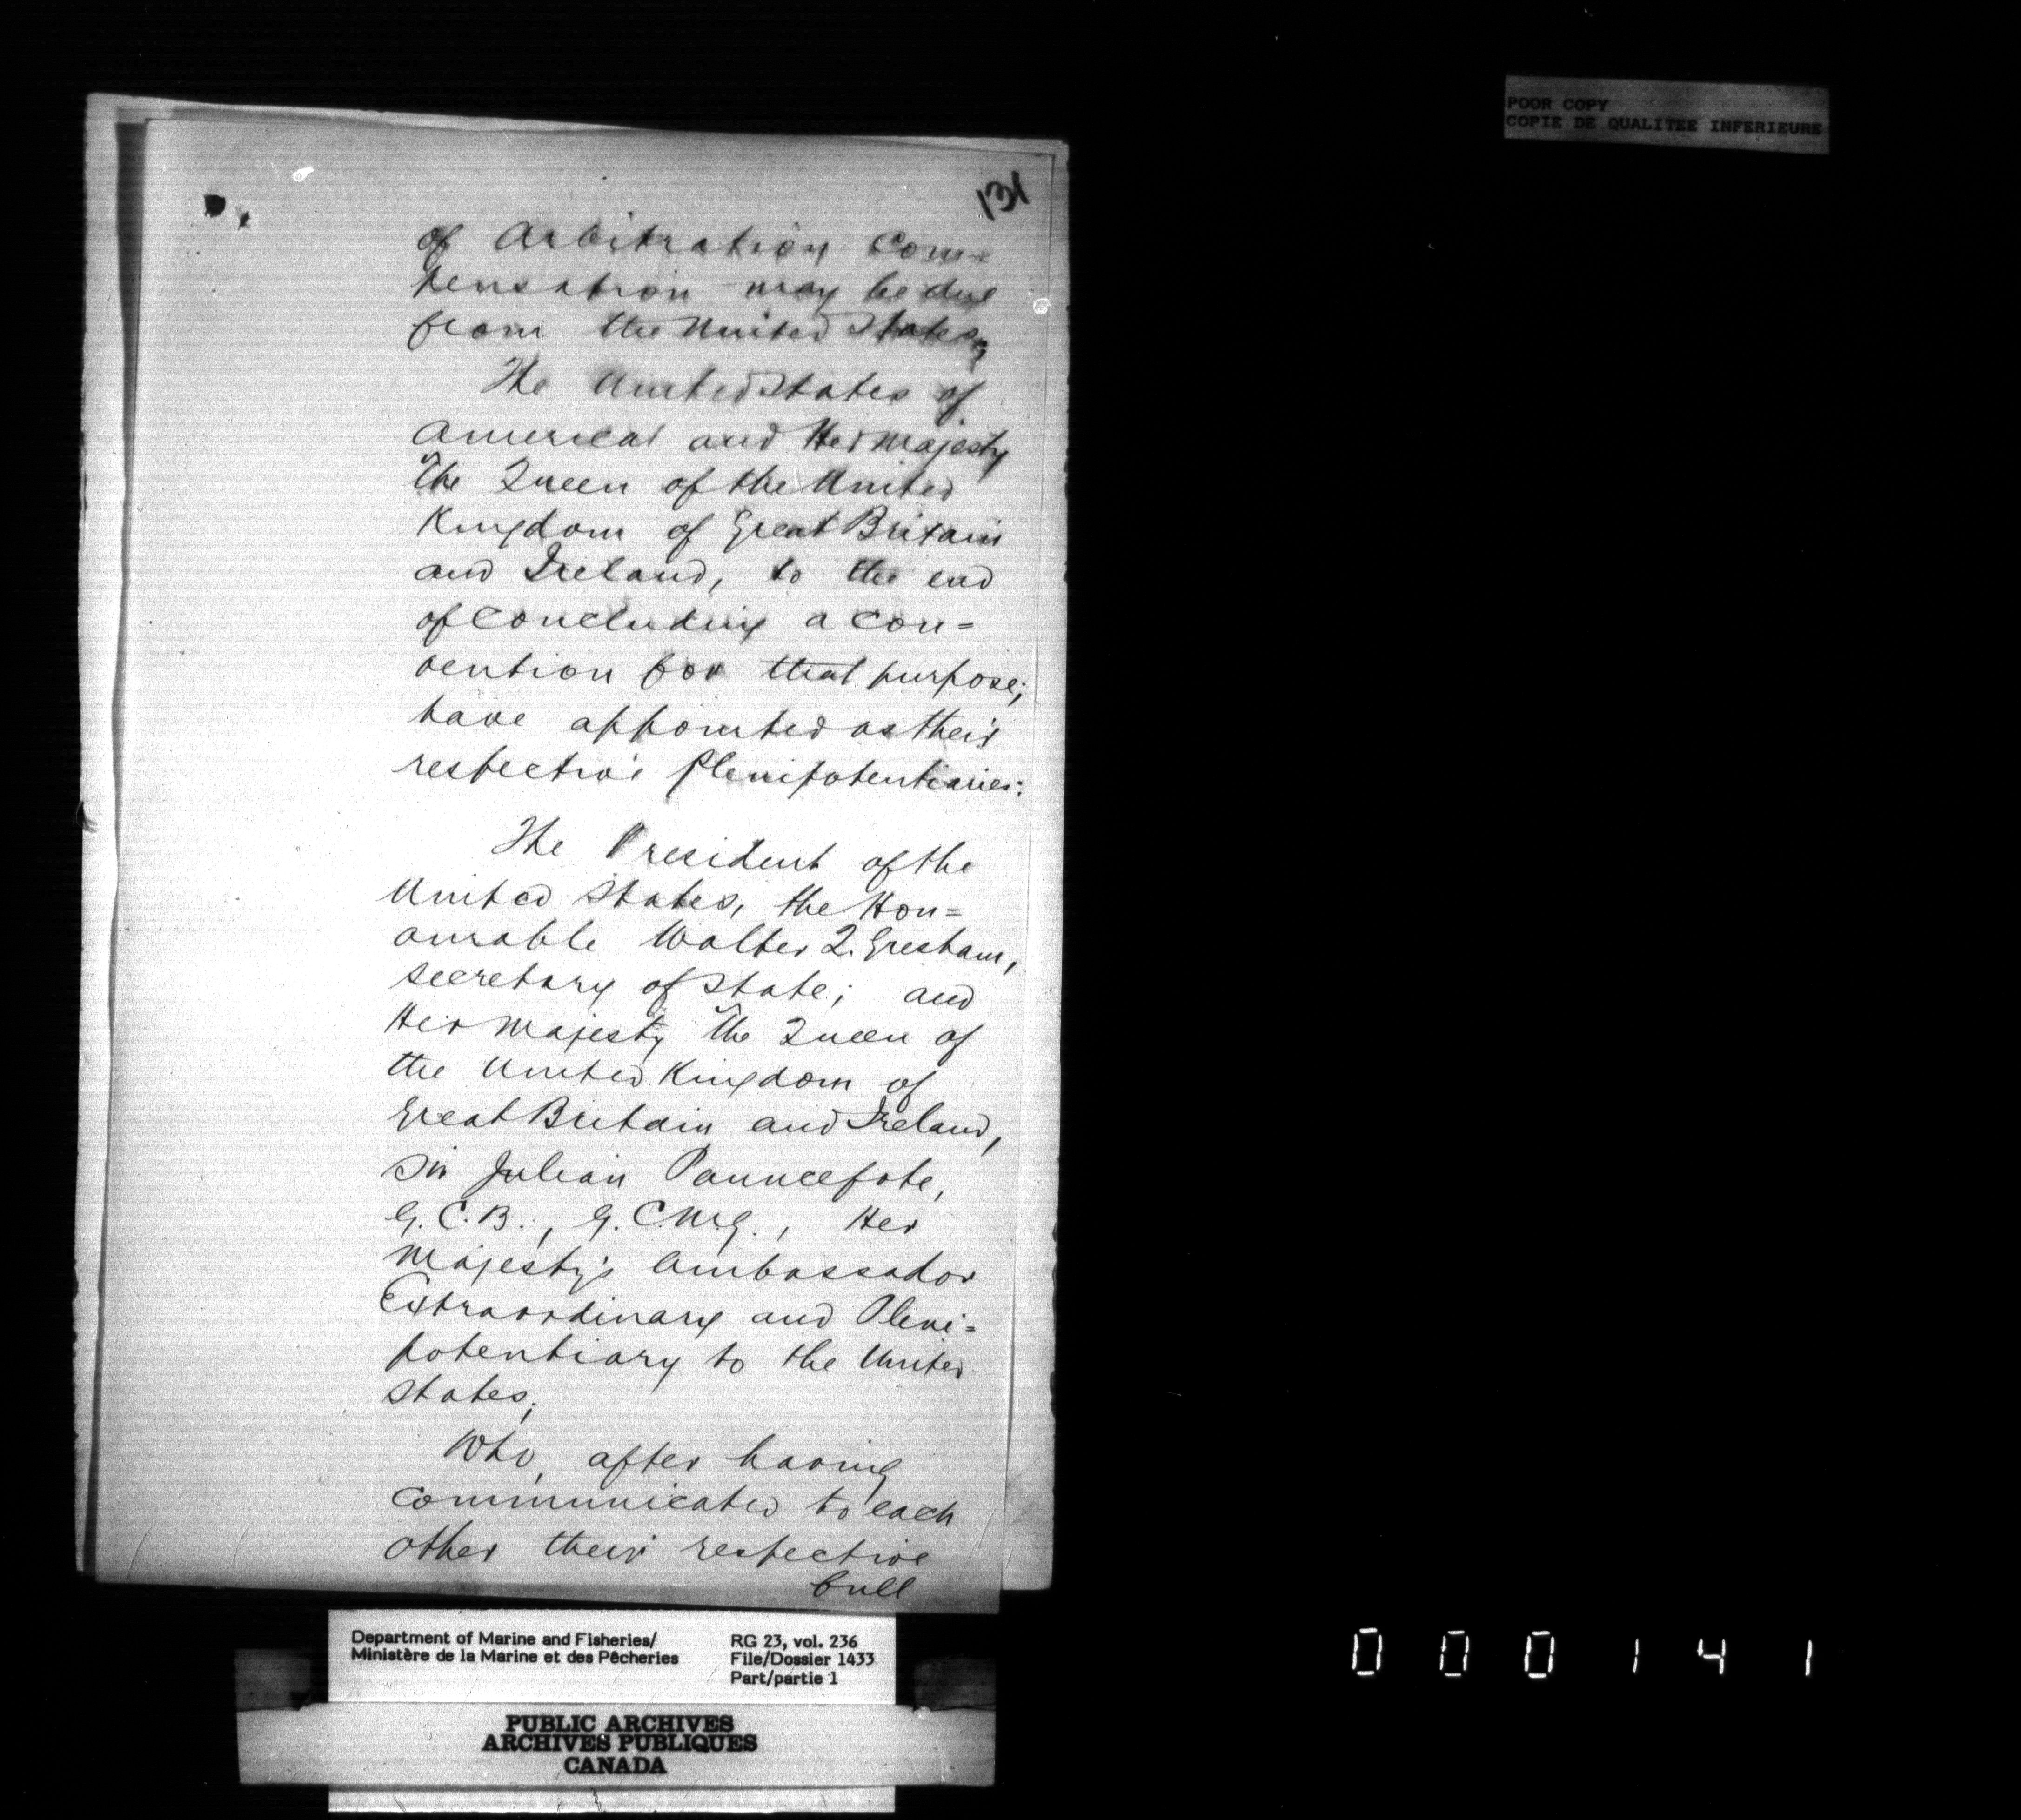 POOR COPY
COPIE DE QUALITEE INFERIEURE
131
of Arbitration Com=
pensation may be due
from the United States,
The United States of
America and Her Majesty
The Queen of the United
Kingdom of Great Britain
and Ireland, to the end
of concluding a con=
vention for that purpose;
have appointed as their
respective Plenipotentiaries:
The President of the
United States, the Hon=
ourable Walter Q. Gresham,
Secretary of State; and
Her Majesty The Queen of
the United Kingdom of
Great Britain and Ireland,
Sir Julian Pauncefote,
G.C.B., G.C.M.G., Her
Majesty's Ambassador
Extraordinary and Pleni=
potentiary to the United
States;
Who, after having
communicated to each
other their respective
full
Department of Marine and Fisheries/
Ministère de la Marine et des Pêcheries
RG 23, vol. 236
File/Dossier 1433
Part/partie 1
PUBLIC ARCHIVES
ARCHIVES PUBLIQUES
CANADA
000141